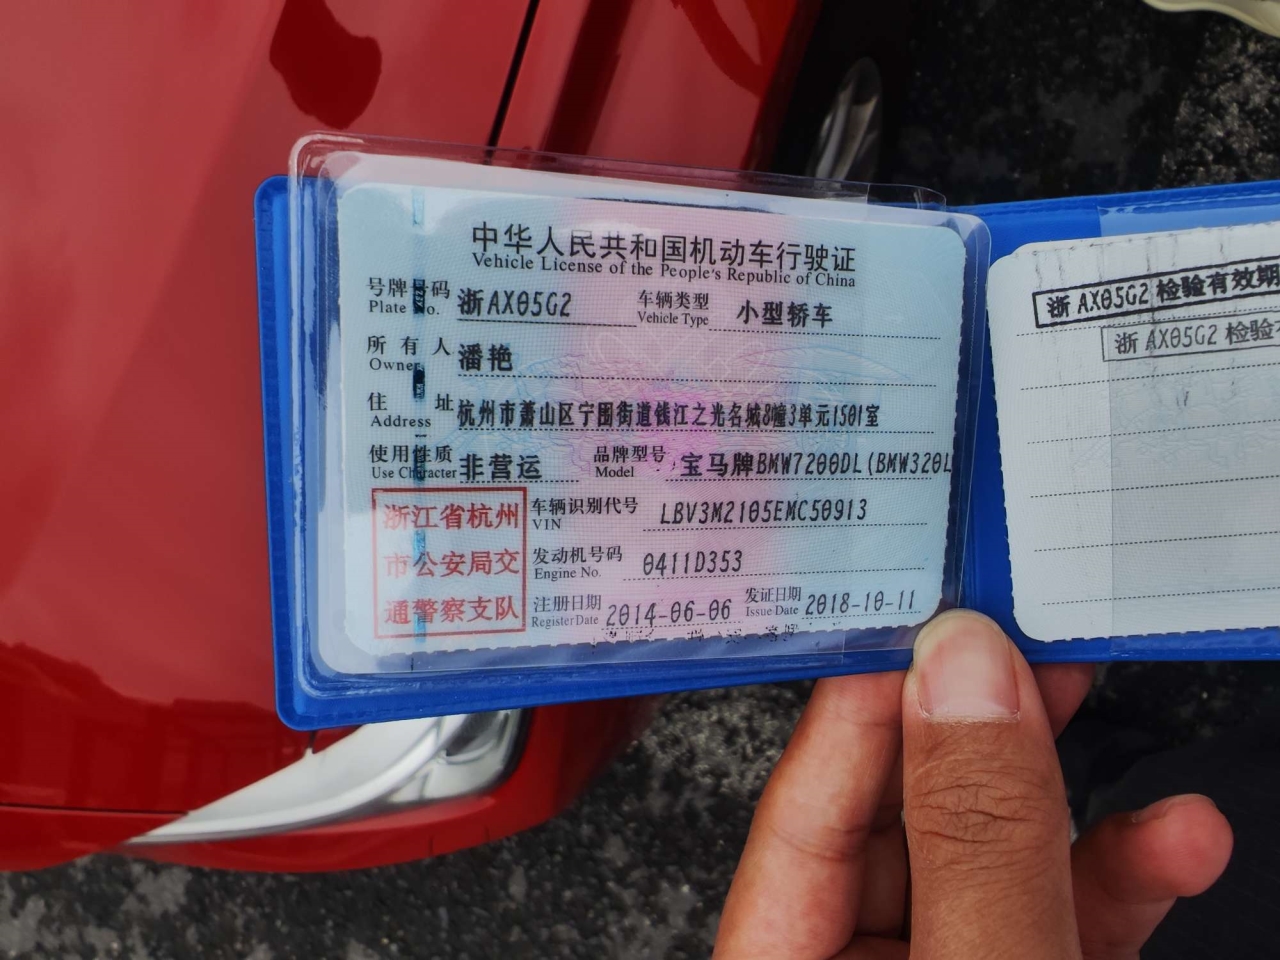 中华人民共和国机动车行驶证
Vehicle License of the People's Republic of China
号牌号码 浙AX05G2 车辆类型 小型轿车
Plate No. Vehicle Type
所有人 潘艳
Owner
住址 杭州市萧山区宁围街道钱江之光名城8幢3单元1501室
Address
使用性质 非营运 品牌型号 宝马牌BMW7200DL(BMW320L
Use Character Model
浙江省杭州
市公安局交
通警察支队
车辆识别代号 LBV3M2105EMC50913
VIN
发动机号码 0411D353
Engine No.
注册日期 2014-06-06 发证日期 2018-10-11
Register Date Issue Date
浙AX05G2 检验有效期
浙AX05G2 检验